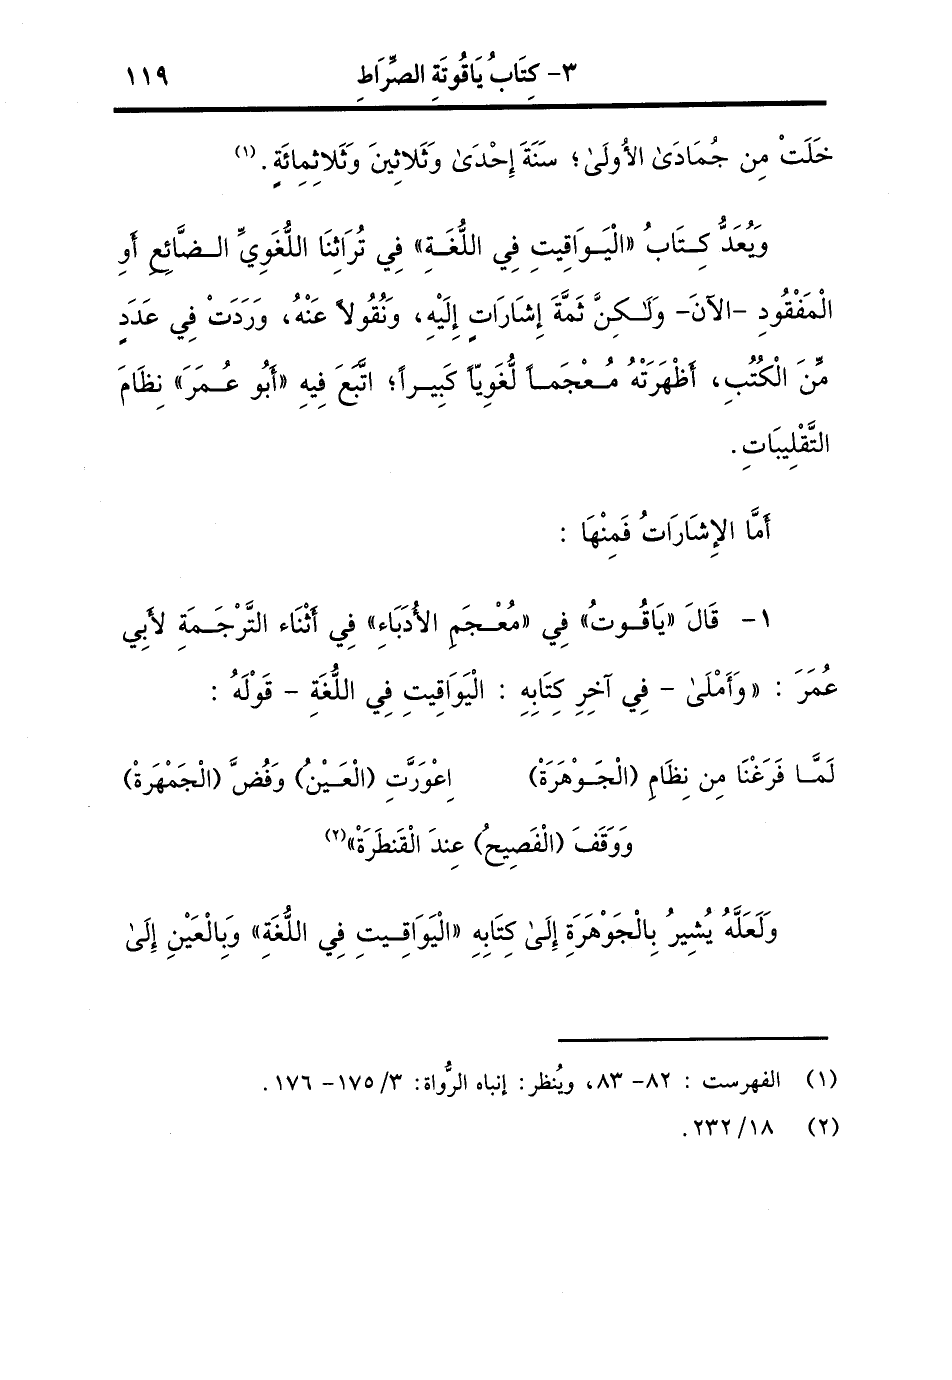 ٣- كِتَابُ يَاقُوتَةِ الصِّرَاطِ ١١٩
خَلَتْ مِن جُمَادَىٰ الأُولَىٰ؛ سَنَةَ إِحْدَىٰ وَثَلاثِينَ وَثَلاثِمِائَةٍ. (١)
وَيُعَدُّ كِتَابُ «الْيَوَاقِيتِ فِي اللُّغَةِ» فِي تُرَاثِنَا اللُّغَوِيِّ الضَّائِعِ أَوِ
الْمَفْقُودِ -الآنَ- وَلَـٰكِنَّ ثَمَّةَ إِشَارَاتٍ إِلَيْهِ، وَنُقُولاً عَنْهُ، وَرَدَتْ فِي عَدَدٍ
مِّنَ الْكُتُبِ، أَظْهَرَتْهُ مُعْجَماً لُغَوِيّاً كَبِيراً؛ اتَّبَعَ فِيهِ «أَبُو عُمَرَ» نِظَامَ
التَّقْلِيبَاتِ.
أَمَّا الإِشَارَاتُ فَمِنْهَا :
١- قَالَ «يَاقُوتُ» فِي «مُعْجَمِ الأُدَبَاءِ» فِي أَثْنَاءِ التَّرْجَمَةِ لأَبِي
عُمَرَ : «وَأَمْلَىٰ - فِي آخِرِ كِتَابِهِ : الْيَوَاقِيتِ فِي اللُّغَةِ - قَوْلَهُ :
لَمَّا فَرَغْنَا مِن نِظَامِ (الْجَوْهَرَةْ) اعْوَرَّتِ (الْعَيْنُ) وَفُضَّ (الْجَمْهَرةْ)
وَوَقَفَ (الْفَصِيحُ) عِندَ الْقَنطَرَةْ»(٢)
وَلَعَلَّهُ يُشِيرُ بِالْجَوْهَرَةِ إِلَىٰ كِتَابِهِ «الْيَوَاقِيتِ فِي اللُّغَةِ» وَبِالْعَيْنِ إِلَىٰ
(١) الفهرست : ٨٢- ٨٣، ويُنظر: إنباه الرُّواة: ٣/ ١٧٥- ١٧٦.
(٢) ١٨/ ٢٣٢.